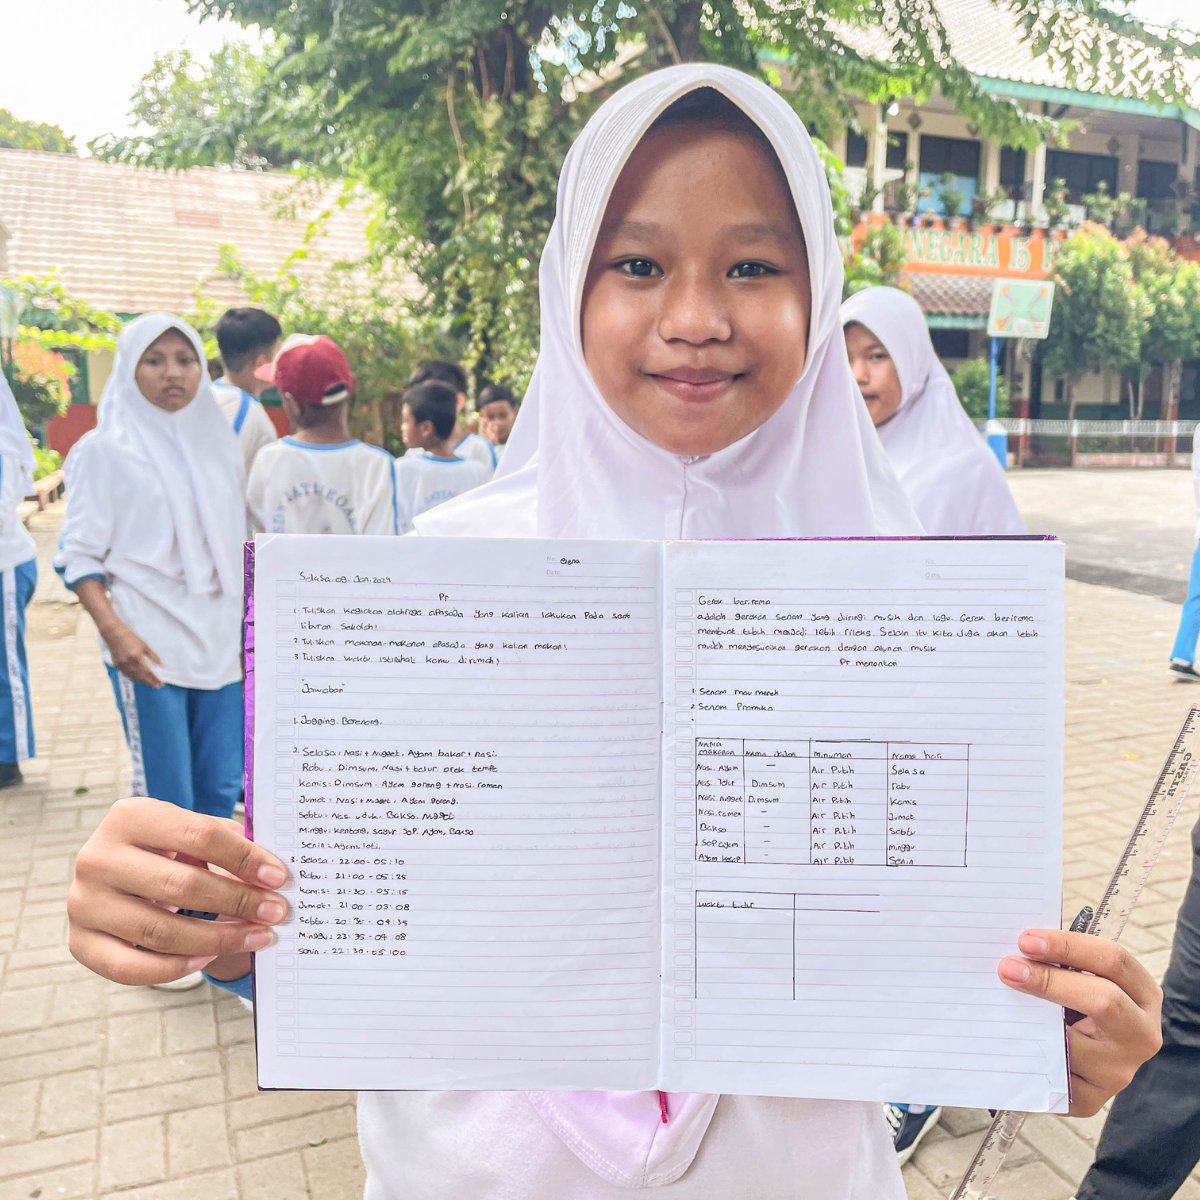 NEGARA 15 P
No. Elena
Date
Selasa, 09, Jan, 2024
Pr
1. Tuliskan kegiatan olahraga apasaja yang kalian lakukan Pada saat
liburan sekolah!
2. Tuliskan makanan-makanan apasaja yang kalian makan!
3. Tuliskan waktu istirahat kamu dirumah!
"Jawaban"
1. Jogging. Berenang.
2. Selasa: Nasi + Nugget, Ayam bakar + nasi.
Rabu : Dimsum, Nasi + telur orek tempe
Kamis: Dimsum, Ayam goreng + nasi, ramen
Jumat: Nasi + nugget, Ayam goreng.
Sabtu: Nasi uduk. Bakso. Nugget
Minggu: Kentang, sayur sop Ayam, Bakso
Senin: Ayam,
3. Selasa : 22:00 - 05:10
Rabu : 21:00 - 05:25
Kamis: 21:30 - 05:15
Jumat: 21:00 - 05:08
Sabtu: 20:35 - 04:35
Minggu: 23:35 - 04:08
Senin : 22:30 - 05:00
No.
Date.
Gerak berirama
adalah gerakan senam yang diiringi musik dan lagu. Gerak berirama
membuat tubuh menjadi lebih rileks Selain itu kita Juga akan lebih
mudah menyesuaikan gerakan dengan alunan musik
Pr menonton
1 Senam maumereh
2 Senam Pramuka
NAMA makanan Nama Jajan Minuman Nama hari
Nasi. Ayam — Air Putih Selasa
Nasi Telur Dimsum Air Putih Rabu
Nasi Nugget Dimsum Air Putih Kamis
Nasi. ramen – Air Putih Jumat
Bakso – Air Putih Sabtu
SOP ayam – Air Putih minggu
Ayam kecap – Air Putih Senin
waktu tidur